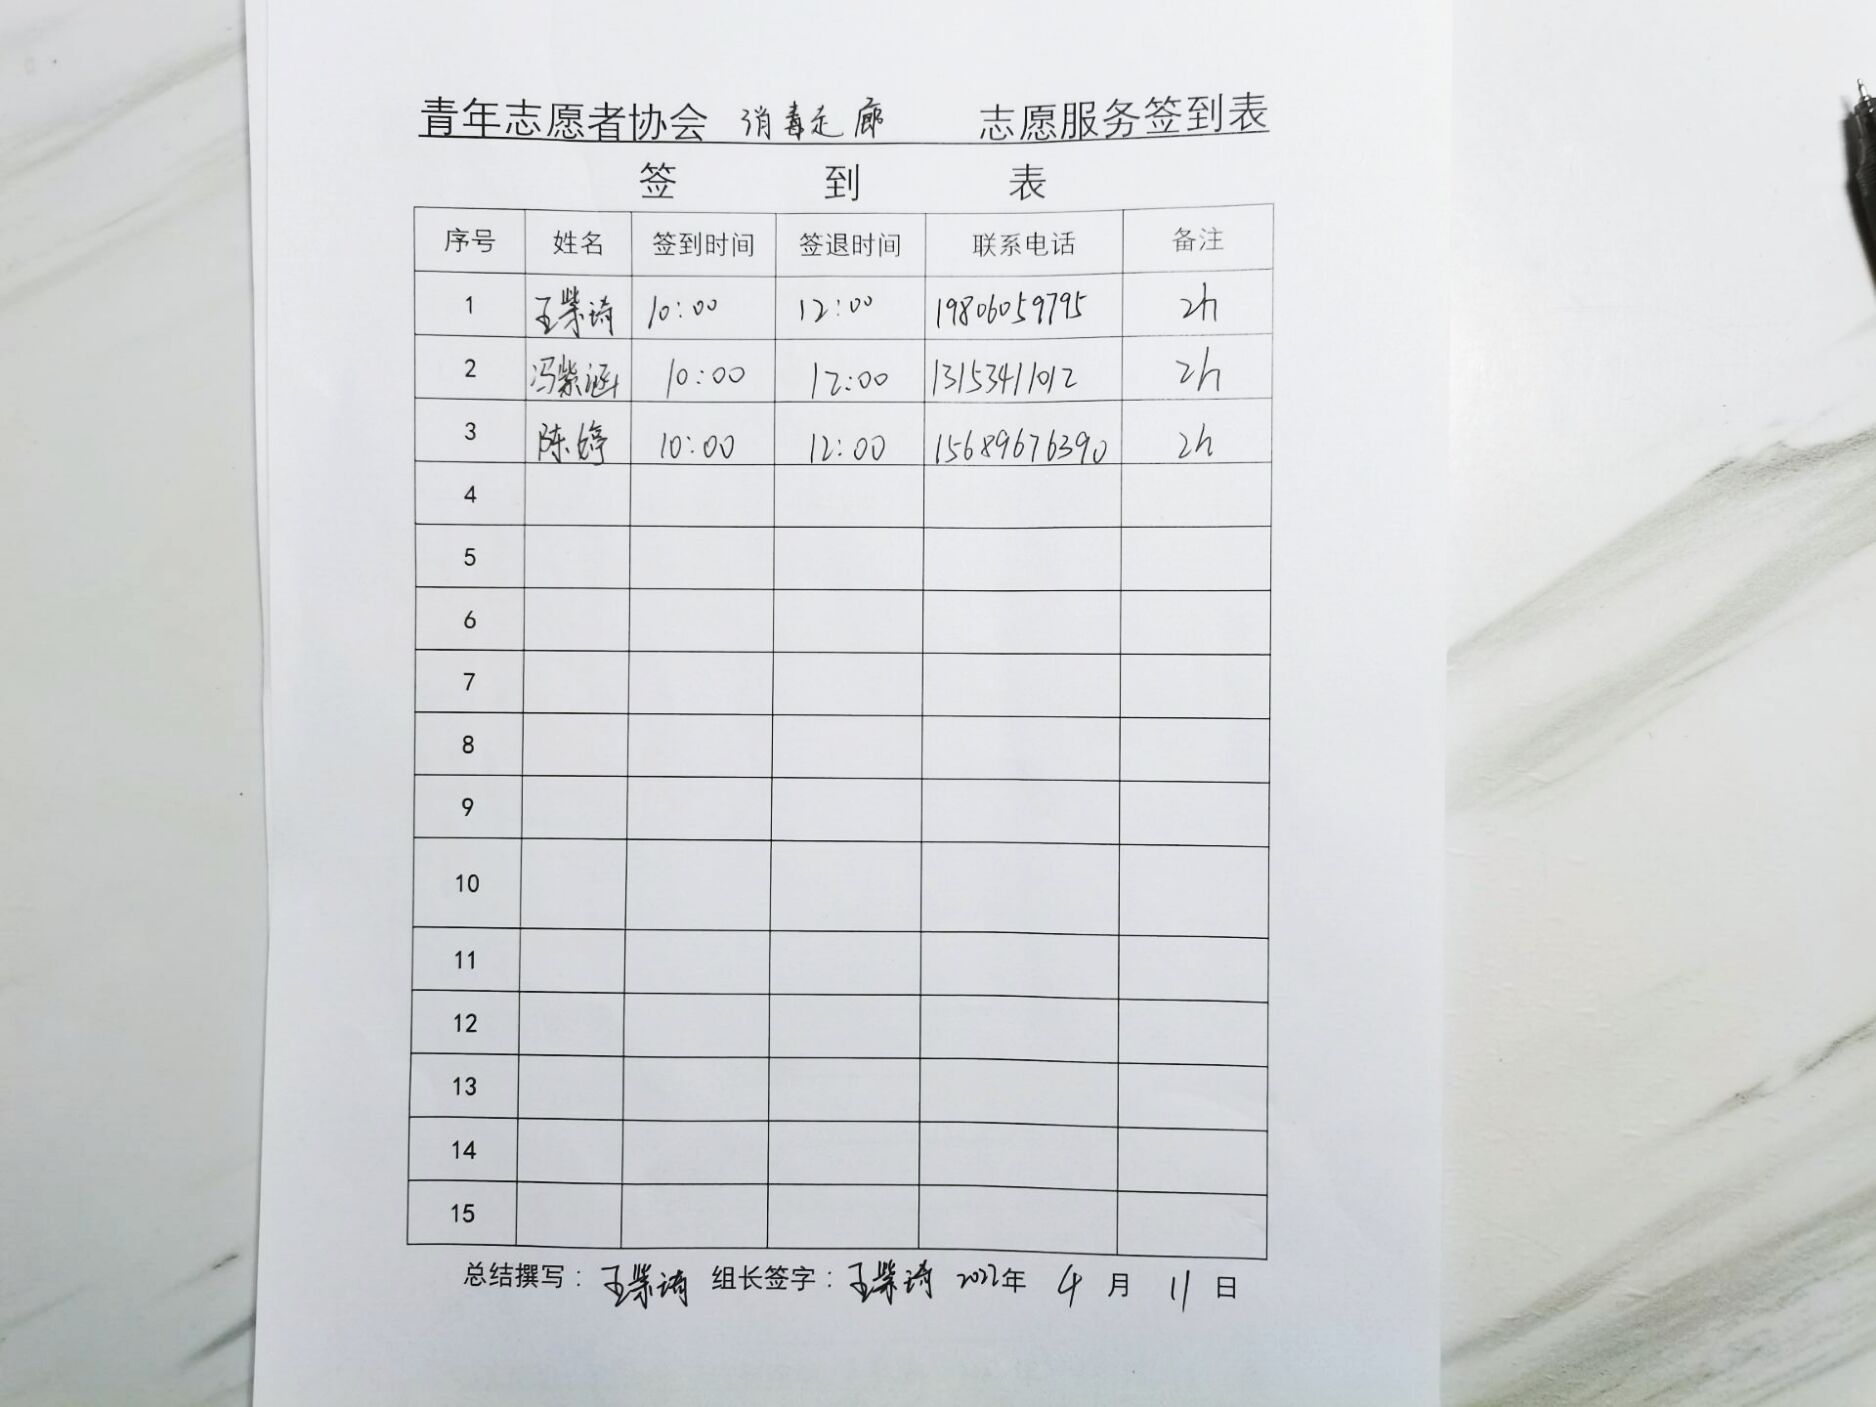 青年志愿者协会 消毒走廊 志愿服务签到表
签 到 表
序号 姓名 签到时间 签退时间 联系电话 备注
1 王紫琦 10:00 12:00 19806059795 2h
2 冯紫涵 10:00 12:00 13153411012 2h
3 陈婷 10:00 12:00 15689676390 2h
4
5
6
7
8
9
10
11
12
13
14
15
总结撰写：王紫琦 组长签字：王紫琦 2022年 4 月 11 日